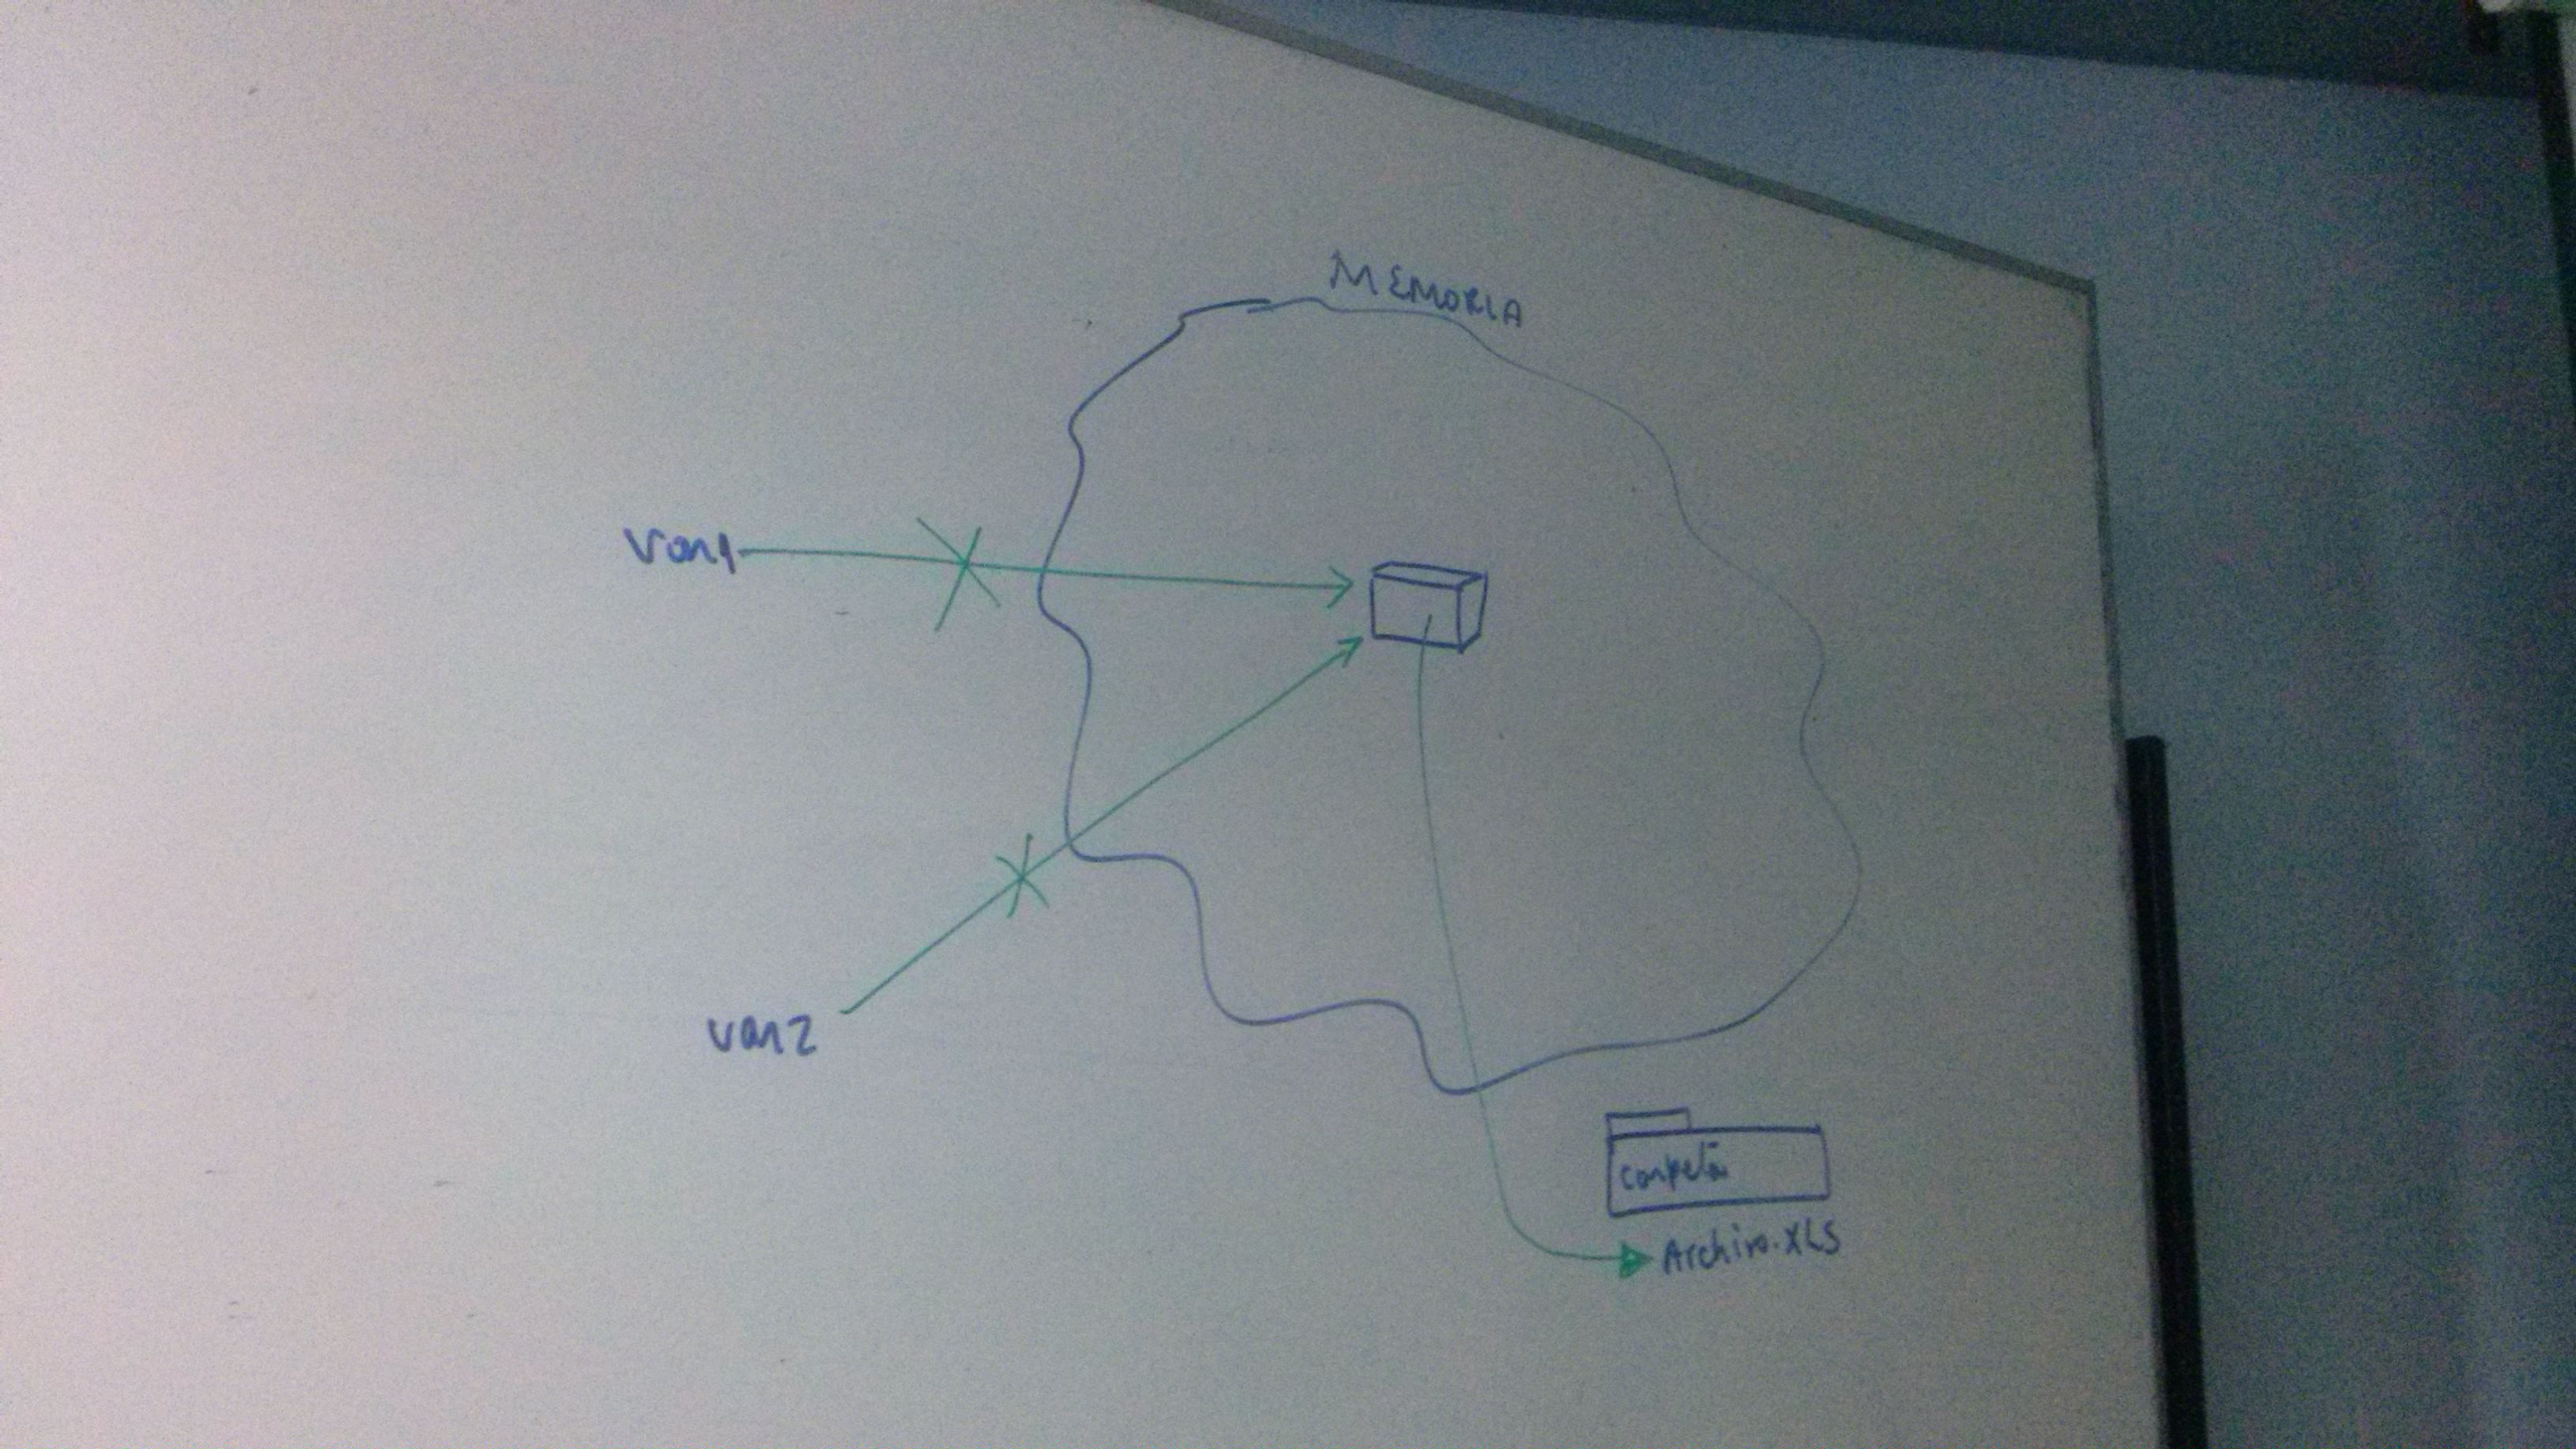 MEMORIA
var1
var2
carpeta
Archivo.XLS